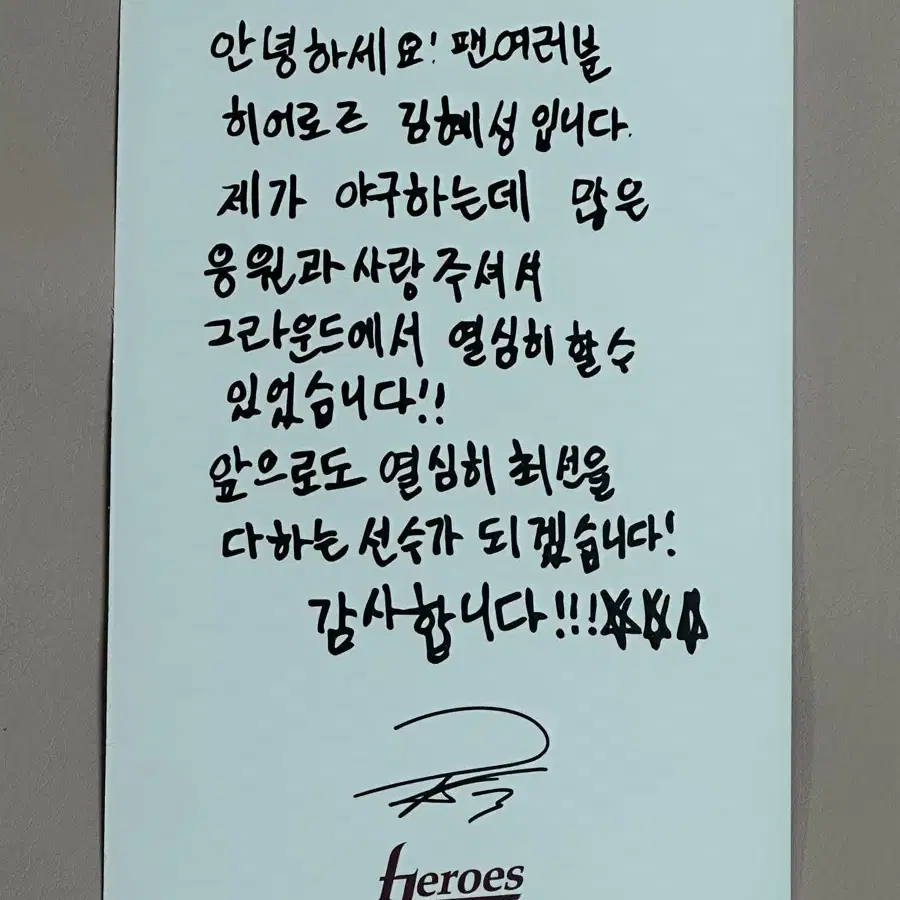 안녕하세요! 팬여러분
히어로즈 김혜성입니다.
제가 야구하는데 많은
응원과 사랑 주셔서
그라운드에서 열심히 할 수
있었습니다!!
앞으로도 열심히 최선을
다하는 선수가 되겠습니다!
감사합니다!!!
heroes